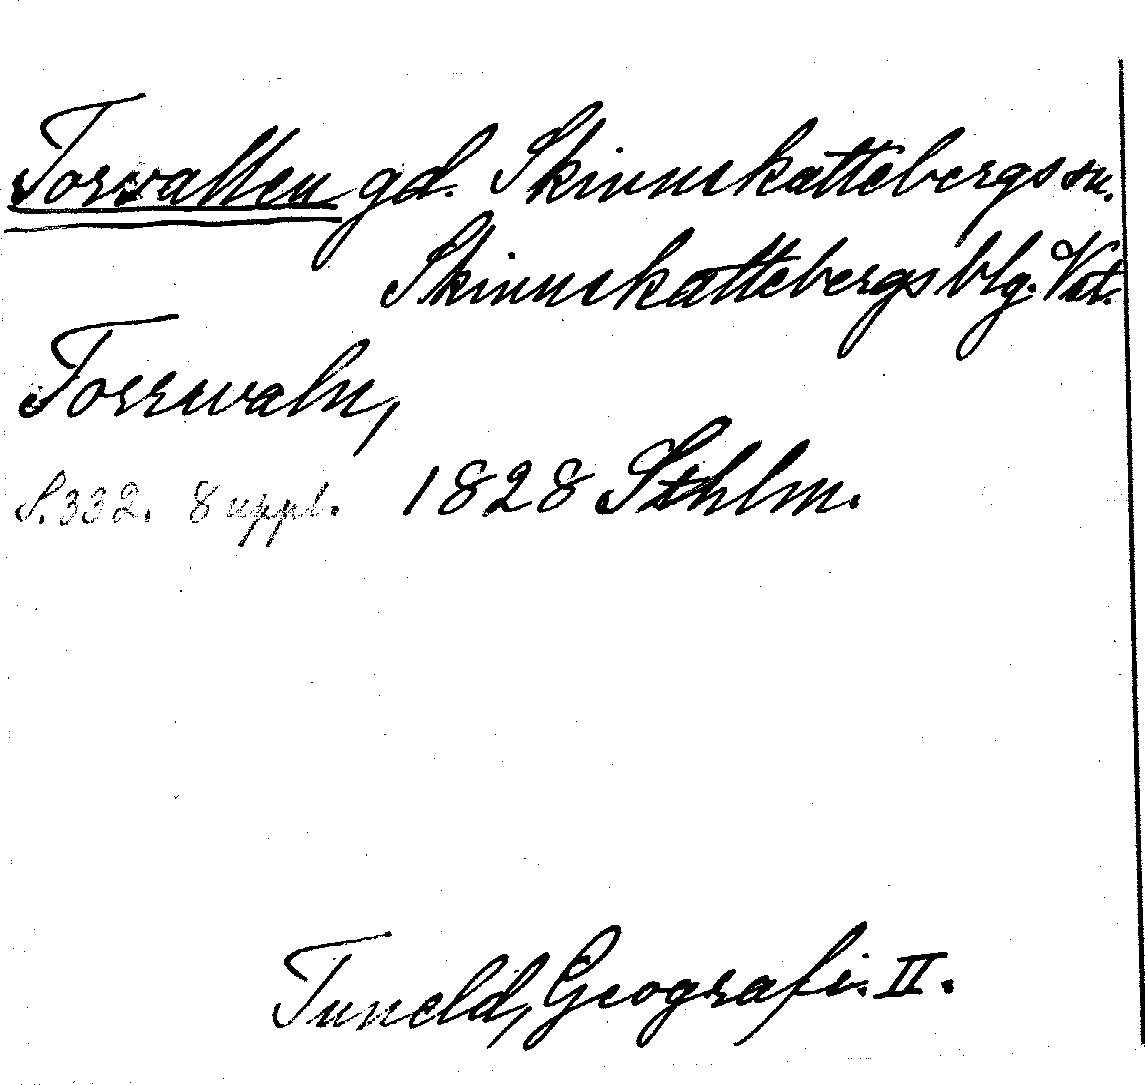 Torvallen gd. Skinnskattebergs sn.
Skinnskattebergs blg. Vstl.
Torrwaln,
S. 332. 8 uppl. 1828 Sthlm.
Tuneld, Geografi. II.